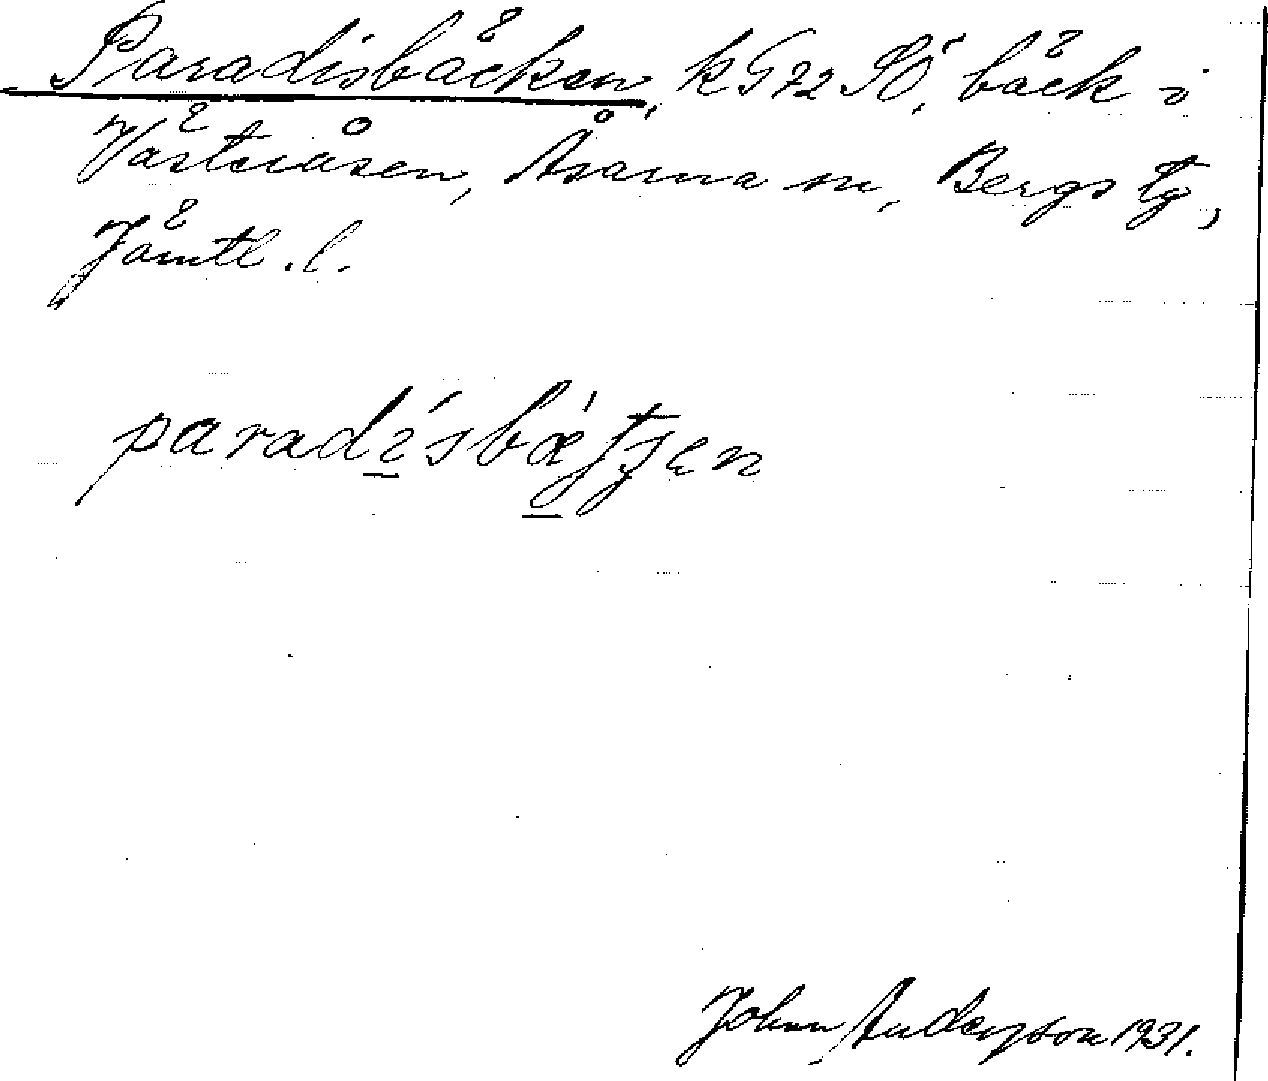 Paradisbäcken, k G 72 SÖ, bäck i
Västeråsen, Åsarna sn, Bergs tg,
Jämtl. l.
paradísbǽtʃen
John Andersson 1931.